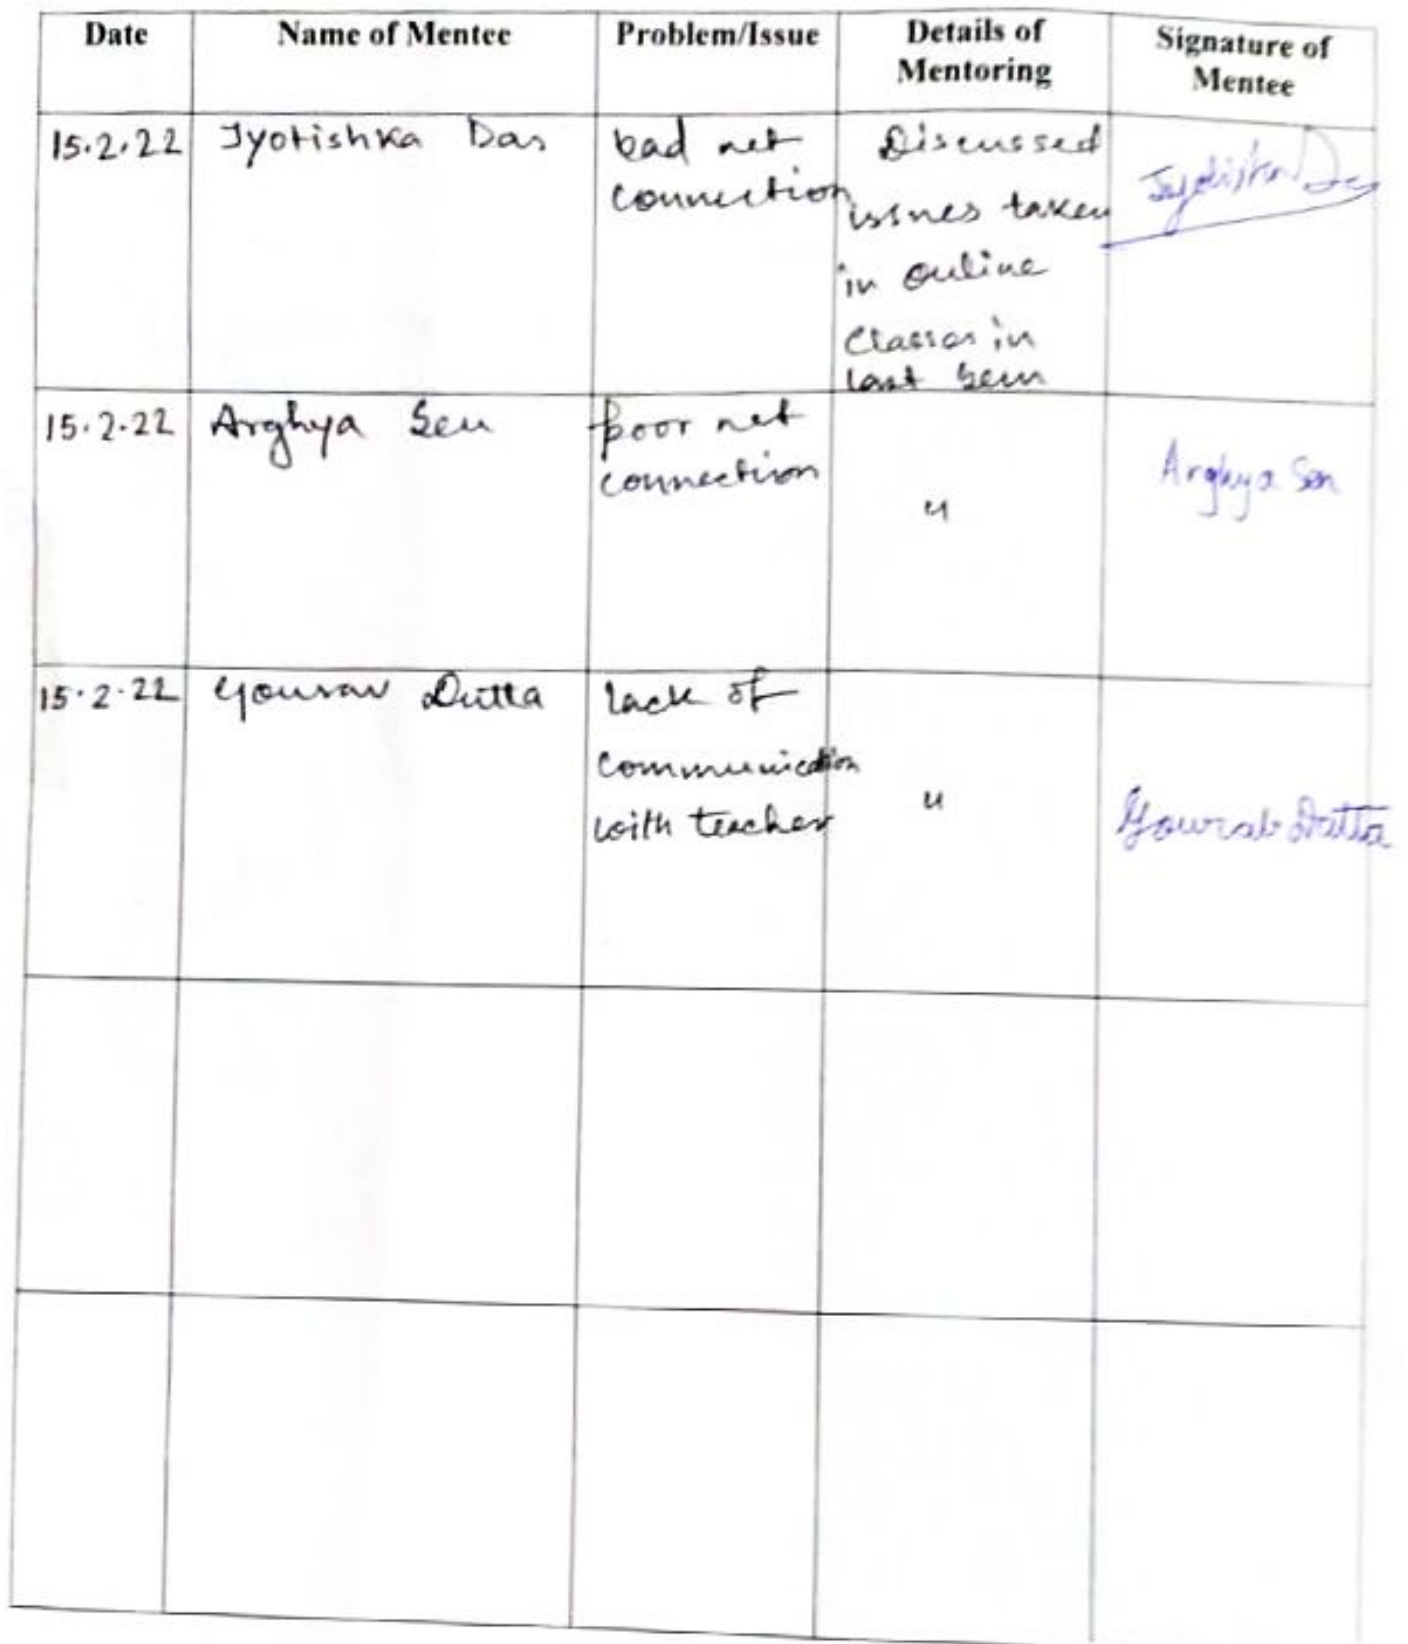 Date Name of Mentee Problem/Issue Details of Mentoring Signature of Mentee
15.2.22 Jyotishka Das bad net connection Discussed issues taken in online classes in last sem Jyotishka Das
15.2.22 Arghya Sen poor net connection " Arghya Sen
15.2.22 Gourav Dutta lack of communication with teacher " Gourab Dutta